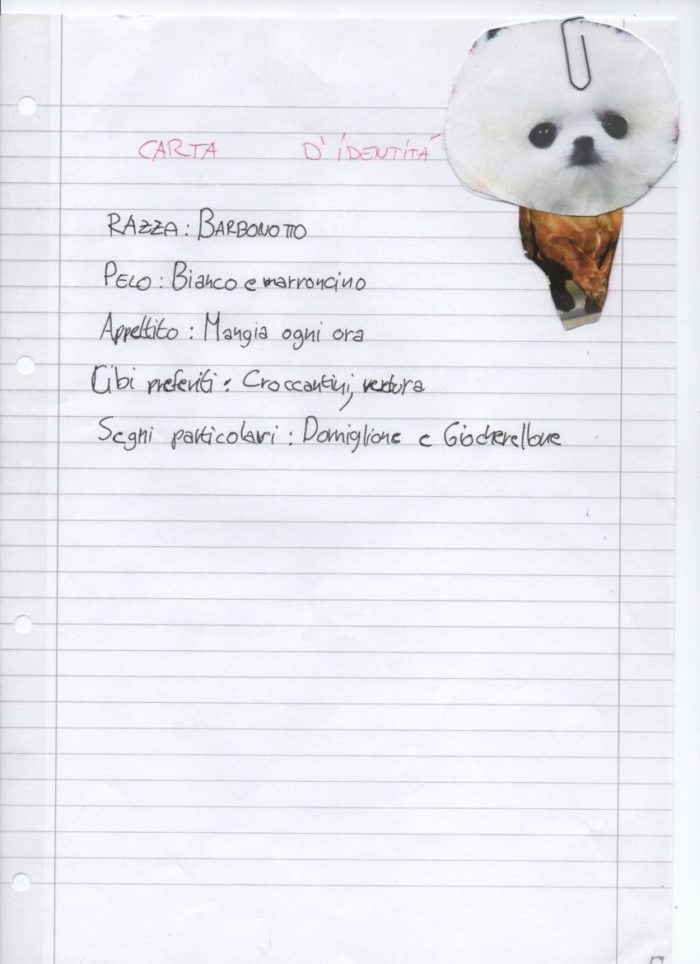 CARTA D'IDENTITÁ
RAZZA: BARBONOTTO
PELO: Bianco e marroncino
Appetito: Mangia ogni ora
Cibi preferiti: Croccantini, verdura
Segni particolari: Dormiglione e Giocherellone